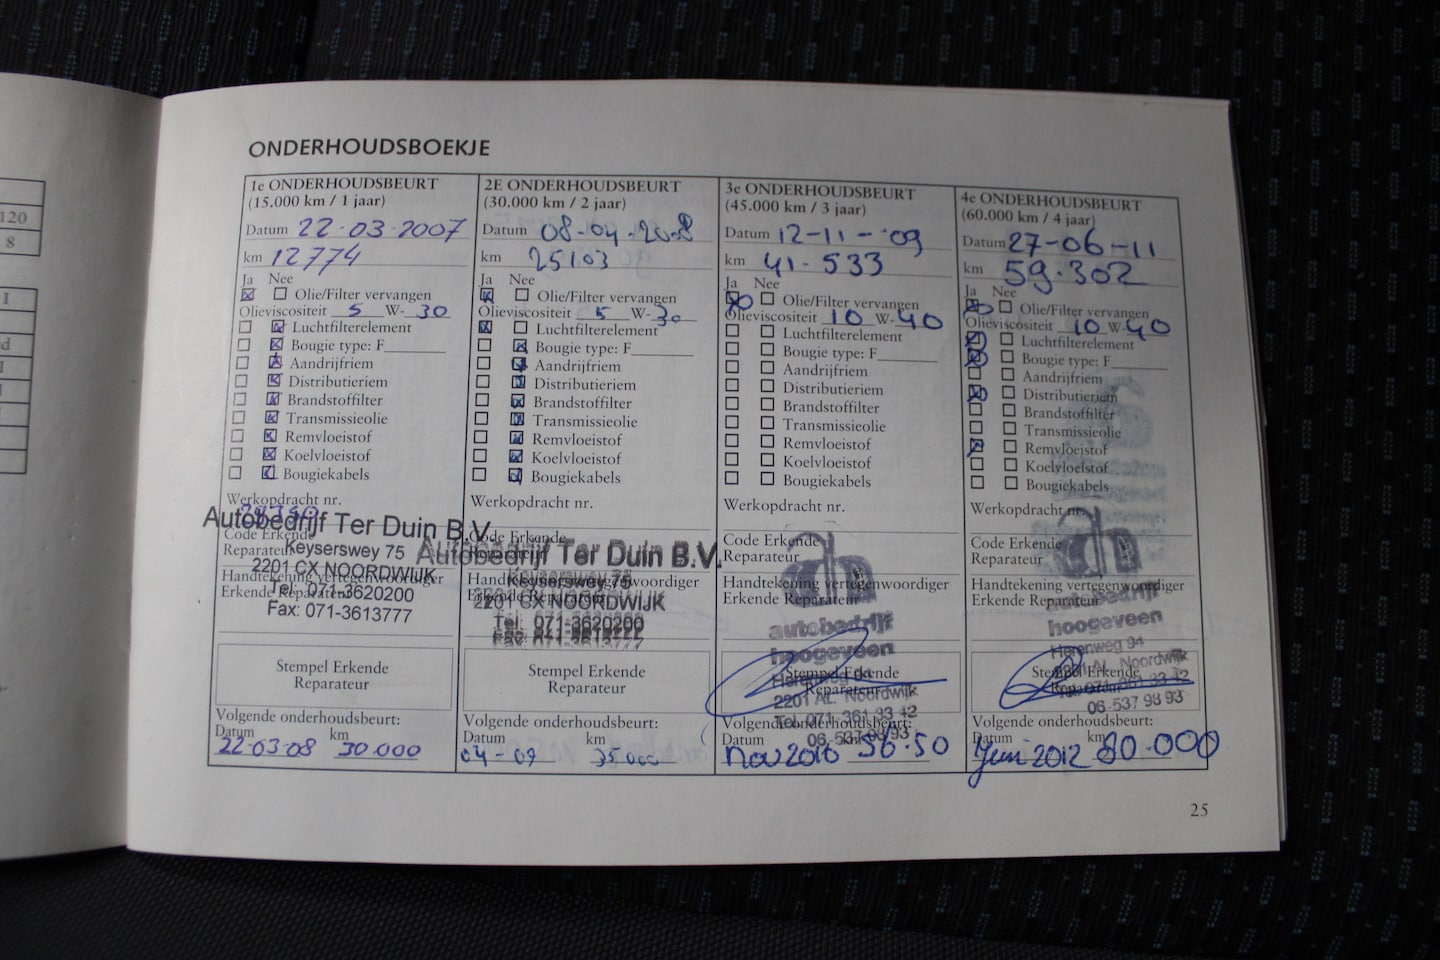 120
8
I
d
I
I
I
ONDERHOUDSBOEKJE
1e ONDERHOUDSBEURT
(15.000 km / 1 jaar)
Datum 22-03-2007
km 12774
Ja Nee
Olie/Filter vervangen
Olieviscositeit 5 W- 30
Luchtfilterelement
Bougie type: F
Aandrijfriem
Distributieriem
Brandstoffilter
Transmissieolie
Remvloeistof
Koelvloeistof
Bougiekabels
Werkopdracht nr.
Autobedrijf Ter Duin B.V.
Code Erkende
Reparateur
Keyserswey 75
2201 CX NOORDWIJK
Handtekening vertegenwoordiger
Erkende Reparateur
Tel: 071-3620200
Fax: 071-3613777
Stempel Erkende
Reparateur
Volgende onderhoudsbeurt:
Datum km
22-03-08 30.000
2E ONDERHOUDSBEURT
(30.000 km / 2 jaar)
Datum 08-04-2008
km 25103
Ja Nee
Olie/Filter vervangen
Olieviscositeit 5 W- 30
Luchtfilterelement
Bougie type: F
Aandrijfriem
Distributieriem
Brandstoffilter
Transmissieolie
Remvloeistof
Koelvloeistof
Bougiekabels
Werkopdracht nr.
Code Erkende
Reparateur
Autobedrijf Ter Duin B.V.
Keyserswey 75
Handtekening vertegenwoordiger
Erkende Reparateur
2201 CX NOORDWIJK
Tel: 071-3620200
Fax: 071-3613777
Stempel Erkende
Reparateur
Volgende onderhoudsbeurt:
Datum km
04-09 35000
3e ONDERHOUDSBEURT
(45.000 km / 3 jaar)
Datum 12-11-'09
km 41.533
Ja Nee
Olie/Filter vervangen
Olieviscositeit 10 W- 40
Luchtfilterelement
Bougie type: F
Aandrijfriem
Distributieriem
Brandstoffilter
Transmissieolie
Remvloeistof
Koelvloeistof
Bougiekabels
Werkopdracht nr.
Code Erkende
Reparateur
Handtekening vertegenwoordiger
Erkende Reparateur
autobedrijf
hoogeveen
Stempel Erkende
Reparateur
Herenweg 94
2201 AL Noordwijk
Tel. 071-361 33 42
06-537 98 93
Volgende onderhoudsbeurt:
Datum km
Nov 2010 56.50
4e ONDERHOUDSBEURT
(60.000 km / 4 jaar)
Datum 27-06-11
km 59.302
Ja Nee
Olie/Filter vervangen
Olieviscositeit 10 W- 40
Luchtfilterelement
Bougie type: F
Aandrijfriem
Distributieriem
Brandstoffilter
Transmissieolie
Remvloeistof
Koelvloeistof
Bougiekabels
Werkopdracht nr.
Code Erkende
Reparateur
Handtekening vertegenwoordiger
Erkende Reparateur
autobedrijf
hoogeveen
Herenweg 94
2201 AL Noordwijk
Stempel Erkende
Reparateur
Tel. 071-361 33 42
06-537 98 93
Volgende onderhoudsbeurt:
Datum km
Juni 2012 80.000
25